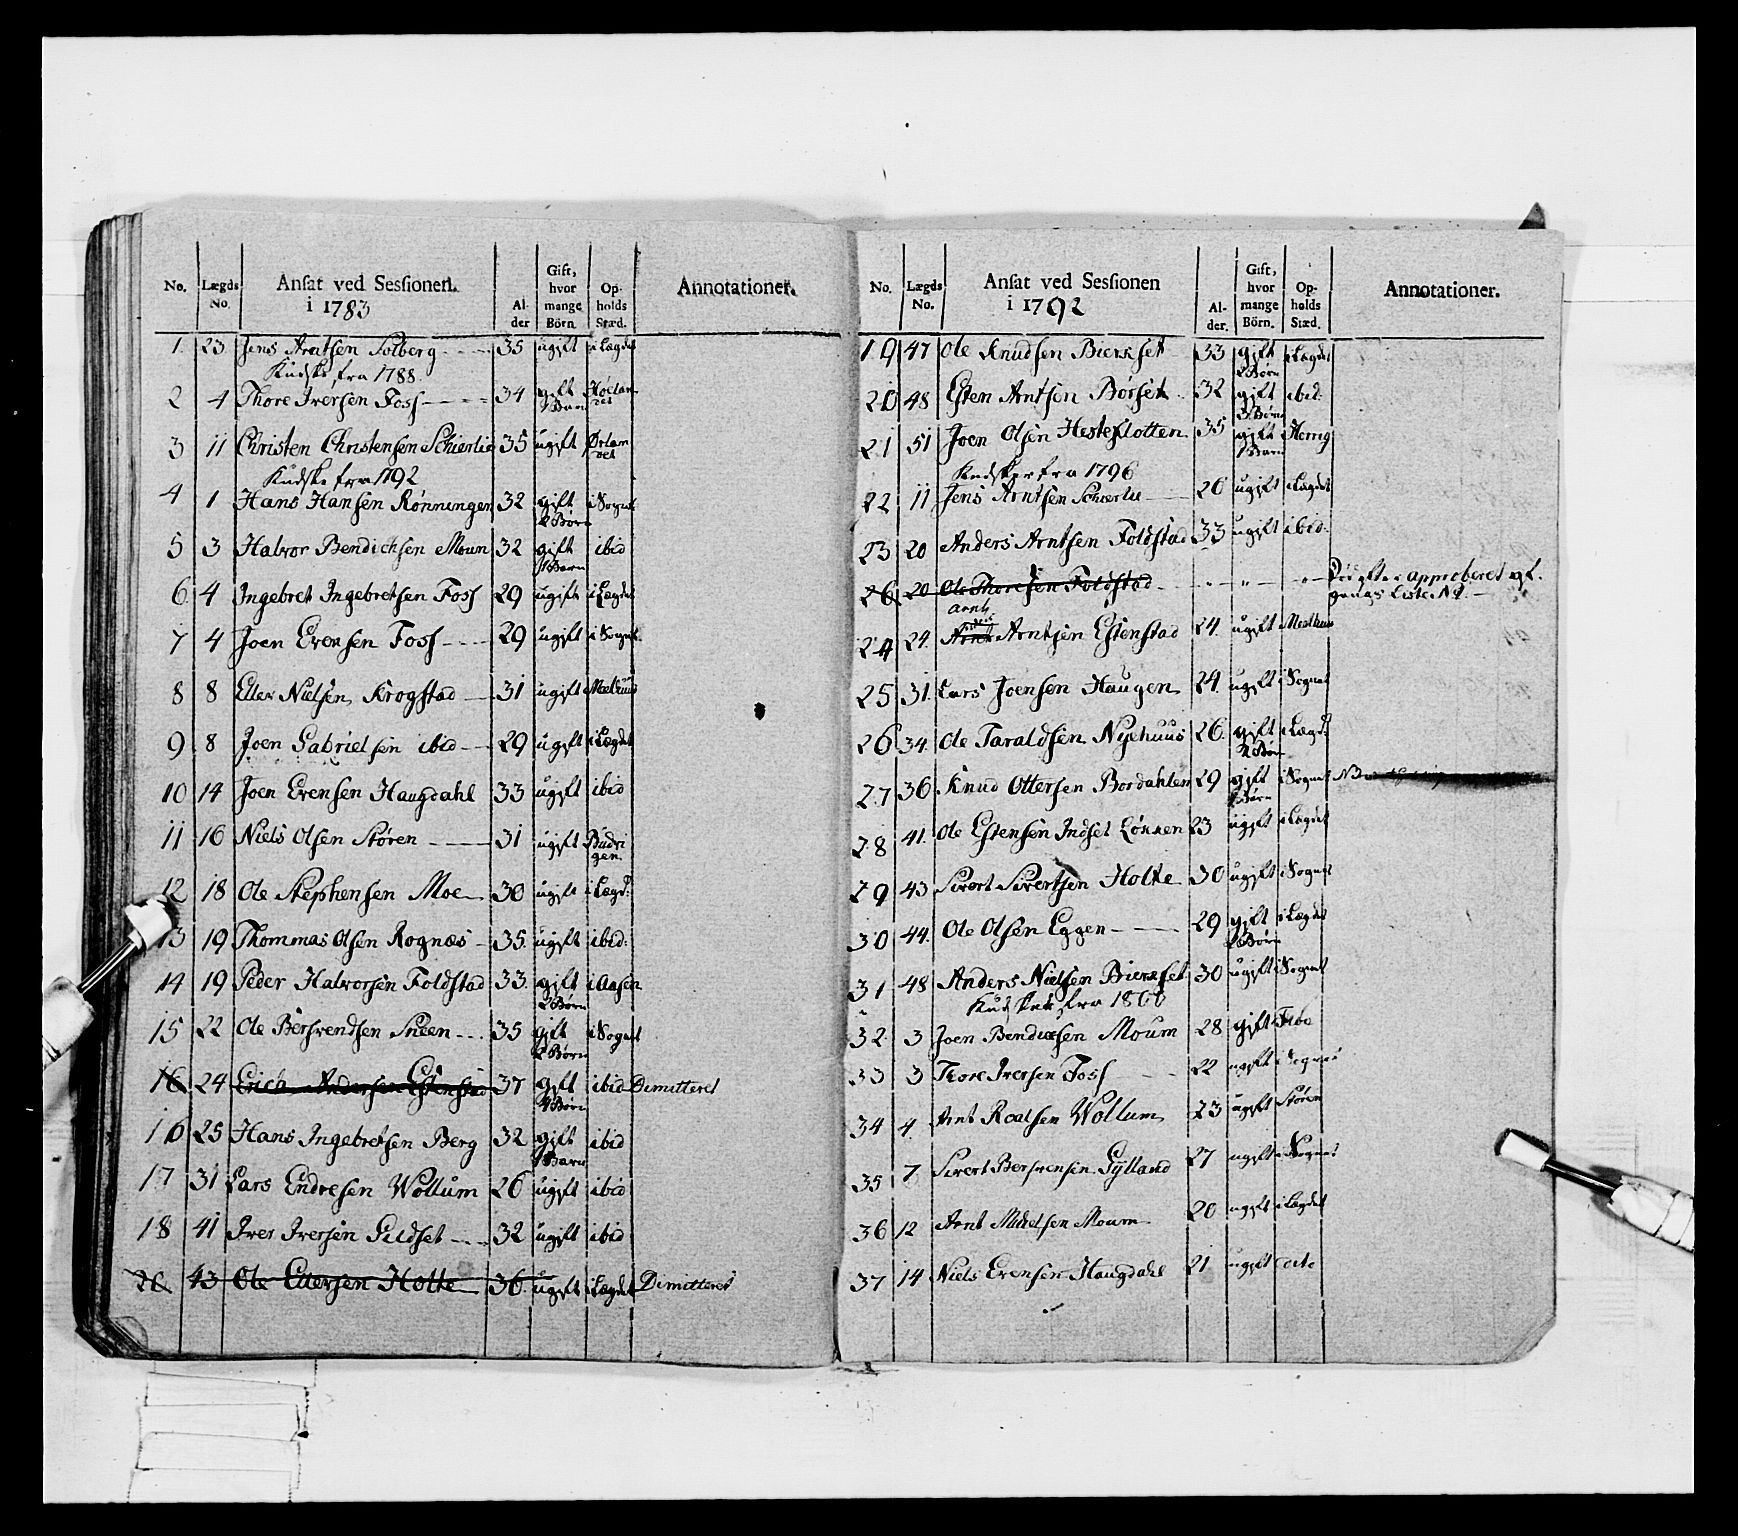 No. Lægds No. Ansat ved Sessionen i 1783 Alder Gift, hvor mange Börn. Opholds Stæd. Annotationer.
1. 23 Jens Arntsen Solberg 35 ugift i Lægdet
Kudske fra 1788.
2 4 Thore Iversen Foss 34 gift 1 Barn
3 11 Christen Christensen Schierlie 35 ugift Ørlandet
Kudske fra 1792
4 1 Hans Hansen Rønningen 32 gift 2 Børn i Sognet
5 3 Halvor Bendichsen Moum 32 gift 1 Barn ibid
6 4 Ingebret Ingebretsen Foss 29 ugift i Lægdet
7 4 Joen Evensen Foss 29 ugift i Sognet
8 8 Eller Nielsen Krogstad 31 ugift Melhuus
9 8 Joen Gabrielsen ibid 29 ugift i Lægdet
10 14 Joen Evensen Haugdahl 33 ugift ibid
11 16 Niels Olsen Støren 31 ugift
12 18 Ole Stephensen Moe 30 ugift i Lægd:
13 19 Thommas Olsen Rognæs 35 ugift ibid:
14 19 Peder Halvorsen Foldstad 33 gift 2 Børn i Aasen
15 22 Ole Bersvendsen Sneen 35 gift 2 Børn i Sognet
16 24 Erich Andersen Estenstad 37 gift Børn ibid Demitteret
16 25 Hans Ingebretsen Berg 32 gift 1 Barn ibid
17 31 Lars Endresen Wollum 26 ugift ibid
18 41 Iver Iversen Gildset 32 ugift ibid
20 43 Ole Ellersen Holte 36 ugift i Lægdet Demitteret
No. Lægds No. Ansat ved Sessionen i 1792 Alder. Gift, hvor mange Börn. Opholds Stæd. Annotationer.
19 47 Ole Knudsen Bierkset 33 gift 2 Børn i Lægdet
20 48 Esten Arntsen Børset 32 gift 3 Børn ibid.
21 51 Joen Olsen Hesteflotten 35 gift 1 Barn
Kudsker fra 1796
22 11 Jens Arntsen Schierlie 26 ugift i Lægdet
23 20 Anders Arntsen Foldstad 33 ugift ibid.
26 20 Ole Thoresen Foldstad " " " approberet Liste No
24 24. Arnt Arntsen Estenstad 24. ugift Melhuus
25 31. Lars Joensen Haugen 24. ugift i Sognet
26 34. Ole Taraldsen Nyehuus 26. gift 2 Børn i Lægd:
27 36 Knud Ottersen Bordahlen 29 gift Børn i Sognet
28 41. Ole Estensen Indset Løkken 23 ugift i Lægdet
29 43 Sivert Sivertsen Holte 30 ugift i Sognet
30 44. Ole Olsen Eggen 29 gift 2 Børn i Lægdet
31 48 Anders Nielsen Bierkset 30 ugift i Sognet
Kudsker fra 1800
32 3 Joen Bendixsen Moum 28 gift
33 3 Thore Iversen Foss 22 ugift i Sognet
34 4. Arnt Roalsen Wollum 23 ugift Støren
35 7 Sivert Bersvensen Gylland 27 ugift i Sognet
36 12 Arnt Mickelsen Moum 20 ugift i Lægdet
37 14 Niels Evensen Haugdahl 21 ugift dito